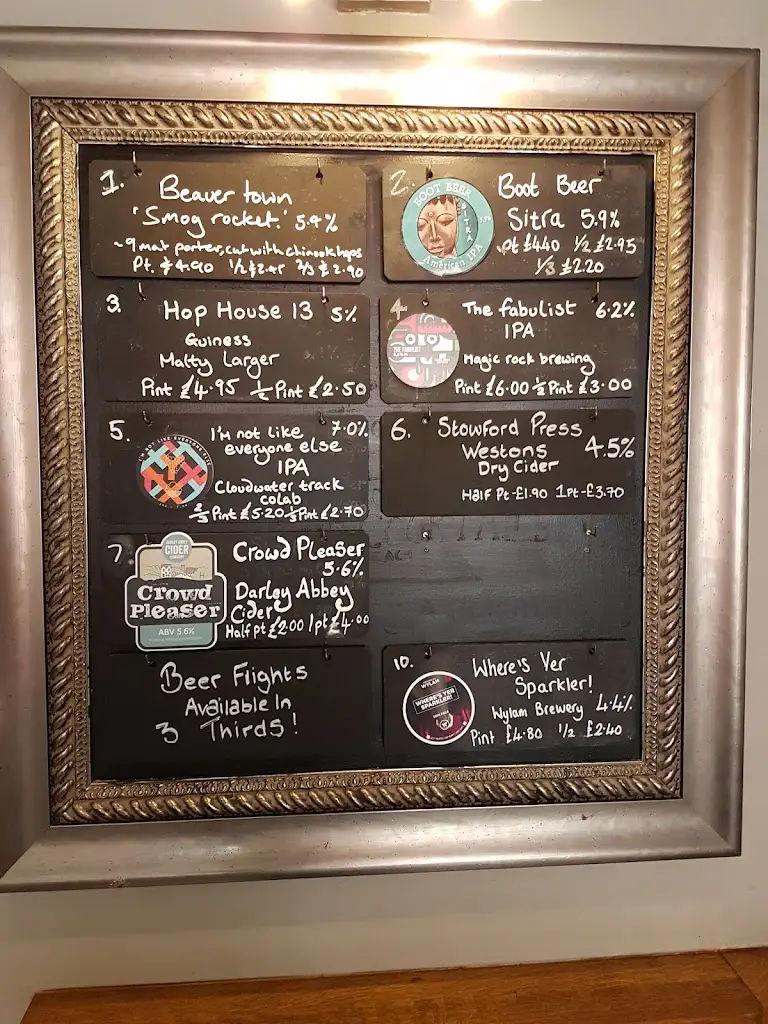 1.
Beaver town
'Smog rocket.' 5.4%
~9 malt porter, cut with chinook hops
Pt. £4.90 1/2 £2.45 2/3 £2.90
2.
BOOT BEER
SITRA
American IPA
Boot Beer
Sitra 5.9%
pt £4.40 1/2 £2.95
1/3 £2.20
3.
Hop House 13 5%
Guiness
Malty Larger
Pint £4.95 1/2 Pint £2.50
4.
THE FABULIST
The fabulist 6.2%
IPA
Magic rock brewing
Pint £6.00 1/2 Pint £3.00
5.
I'M NOT LIKE EVERYONE ELSE
I'm not like 7.0%
everyone else
IPA
Cloudwater track
colab
2/3 Pint £5.20 1/3 Pint £2.70
6.
Stowford Press
Westons 4.5%
Dry Cider
Half Pt-£1.90 1Pt-£3.70
7.
DARLEY ABBEY
CIDER
COMPANY
Crowd
Pleaser
ABV 5.6%
Crowd Pleaser
5.6%
Darley Abbey
Cider
Half pt £2.00 1pt £4.00
Beer Flights
Available In
3 Thirds!
10.
WYLAM
WHERE'S YER
SPARKLER!
Where's Yer
Sparkler!
Wylam Brewery 4.4%
Pint £4.80 1/2 £2.40